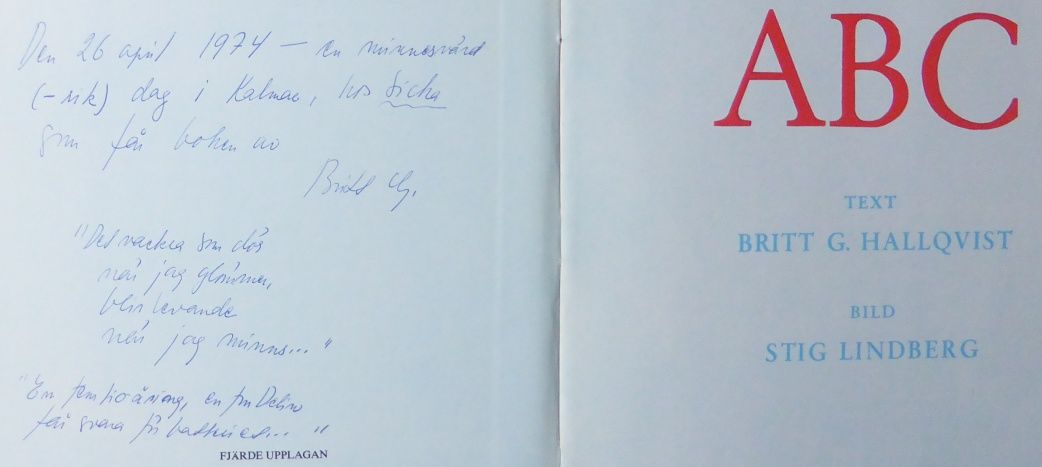 Den 26 april 1974 — en minnesvärd
(-rik) dag i Kalmar, hos Sicka
som får boken av
Britt G.
"Det vackra som dör
när jag glömmer,
blir levande
när jag minns..."
"En femtioåring, en
får svara för
FJÄRDE UPPLAGAN
ABC
TEXT
BRITT G. HALLQVIST
BILD
STIG LINDBERG